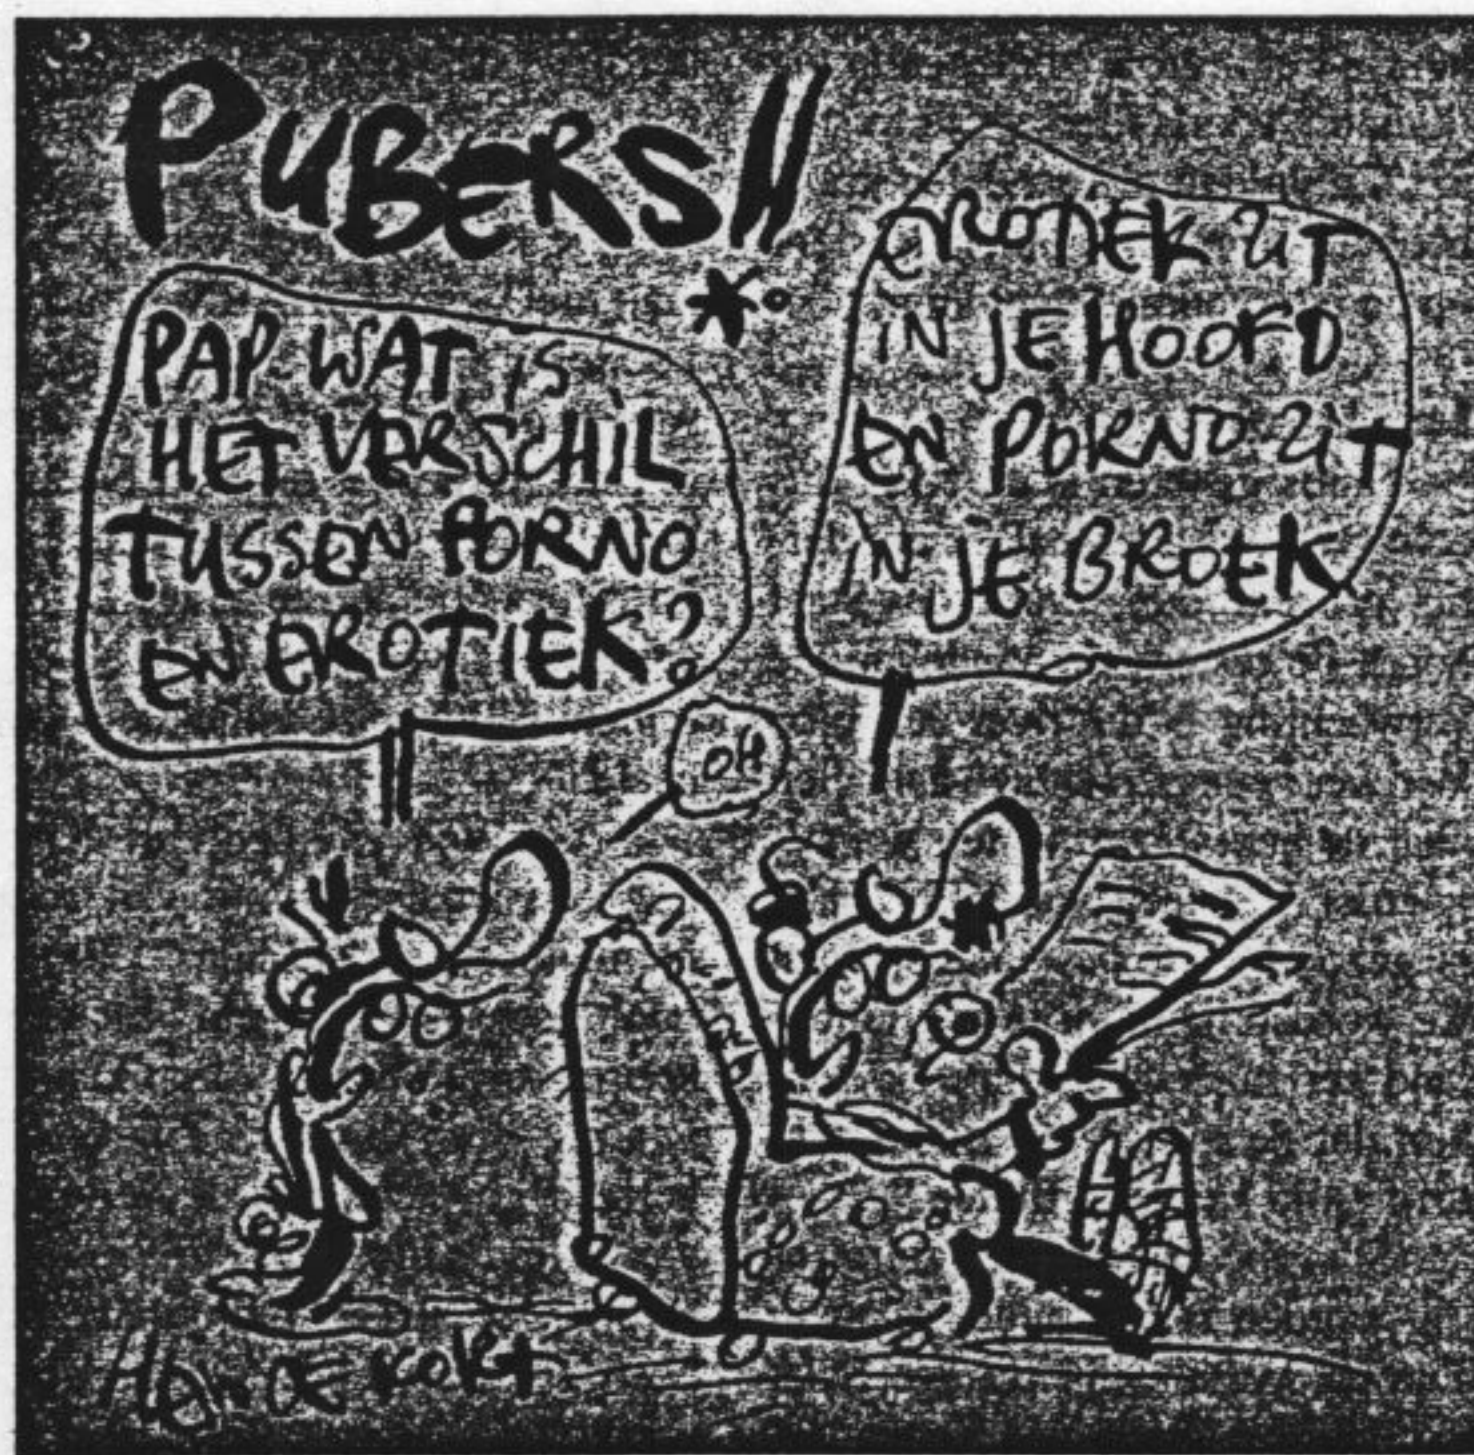 PUBERS!!
PAP WAT IS
HET VERSCHIL
TUSSEN PORNO
EN EROTIEK?
EROTIEK ZIT
IN JE HOOFD
EN PORNO ZIT
IN JE BROEK
OH
DE KORT